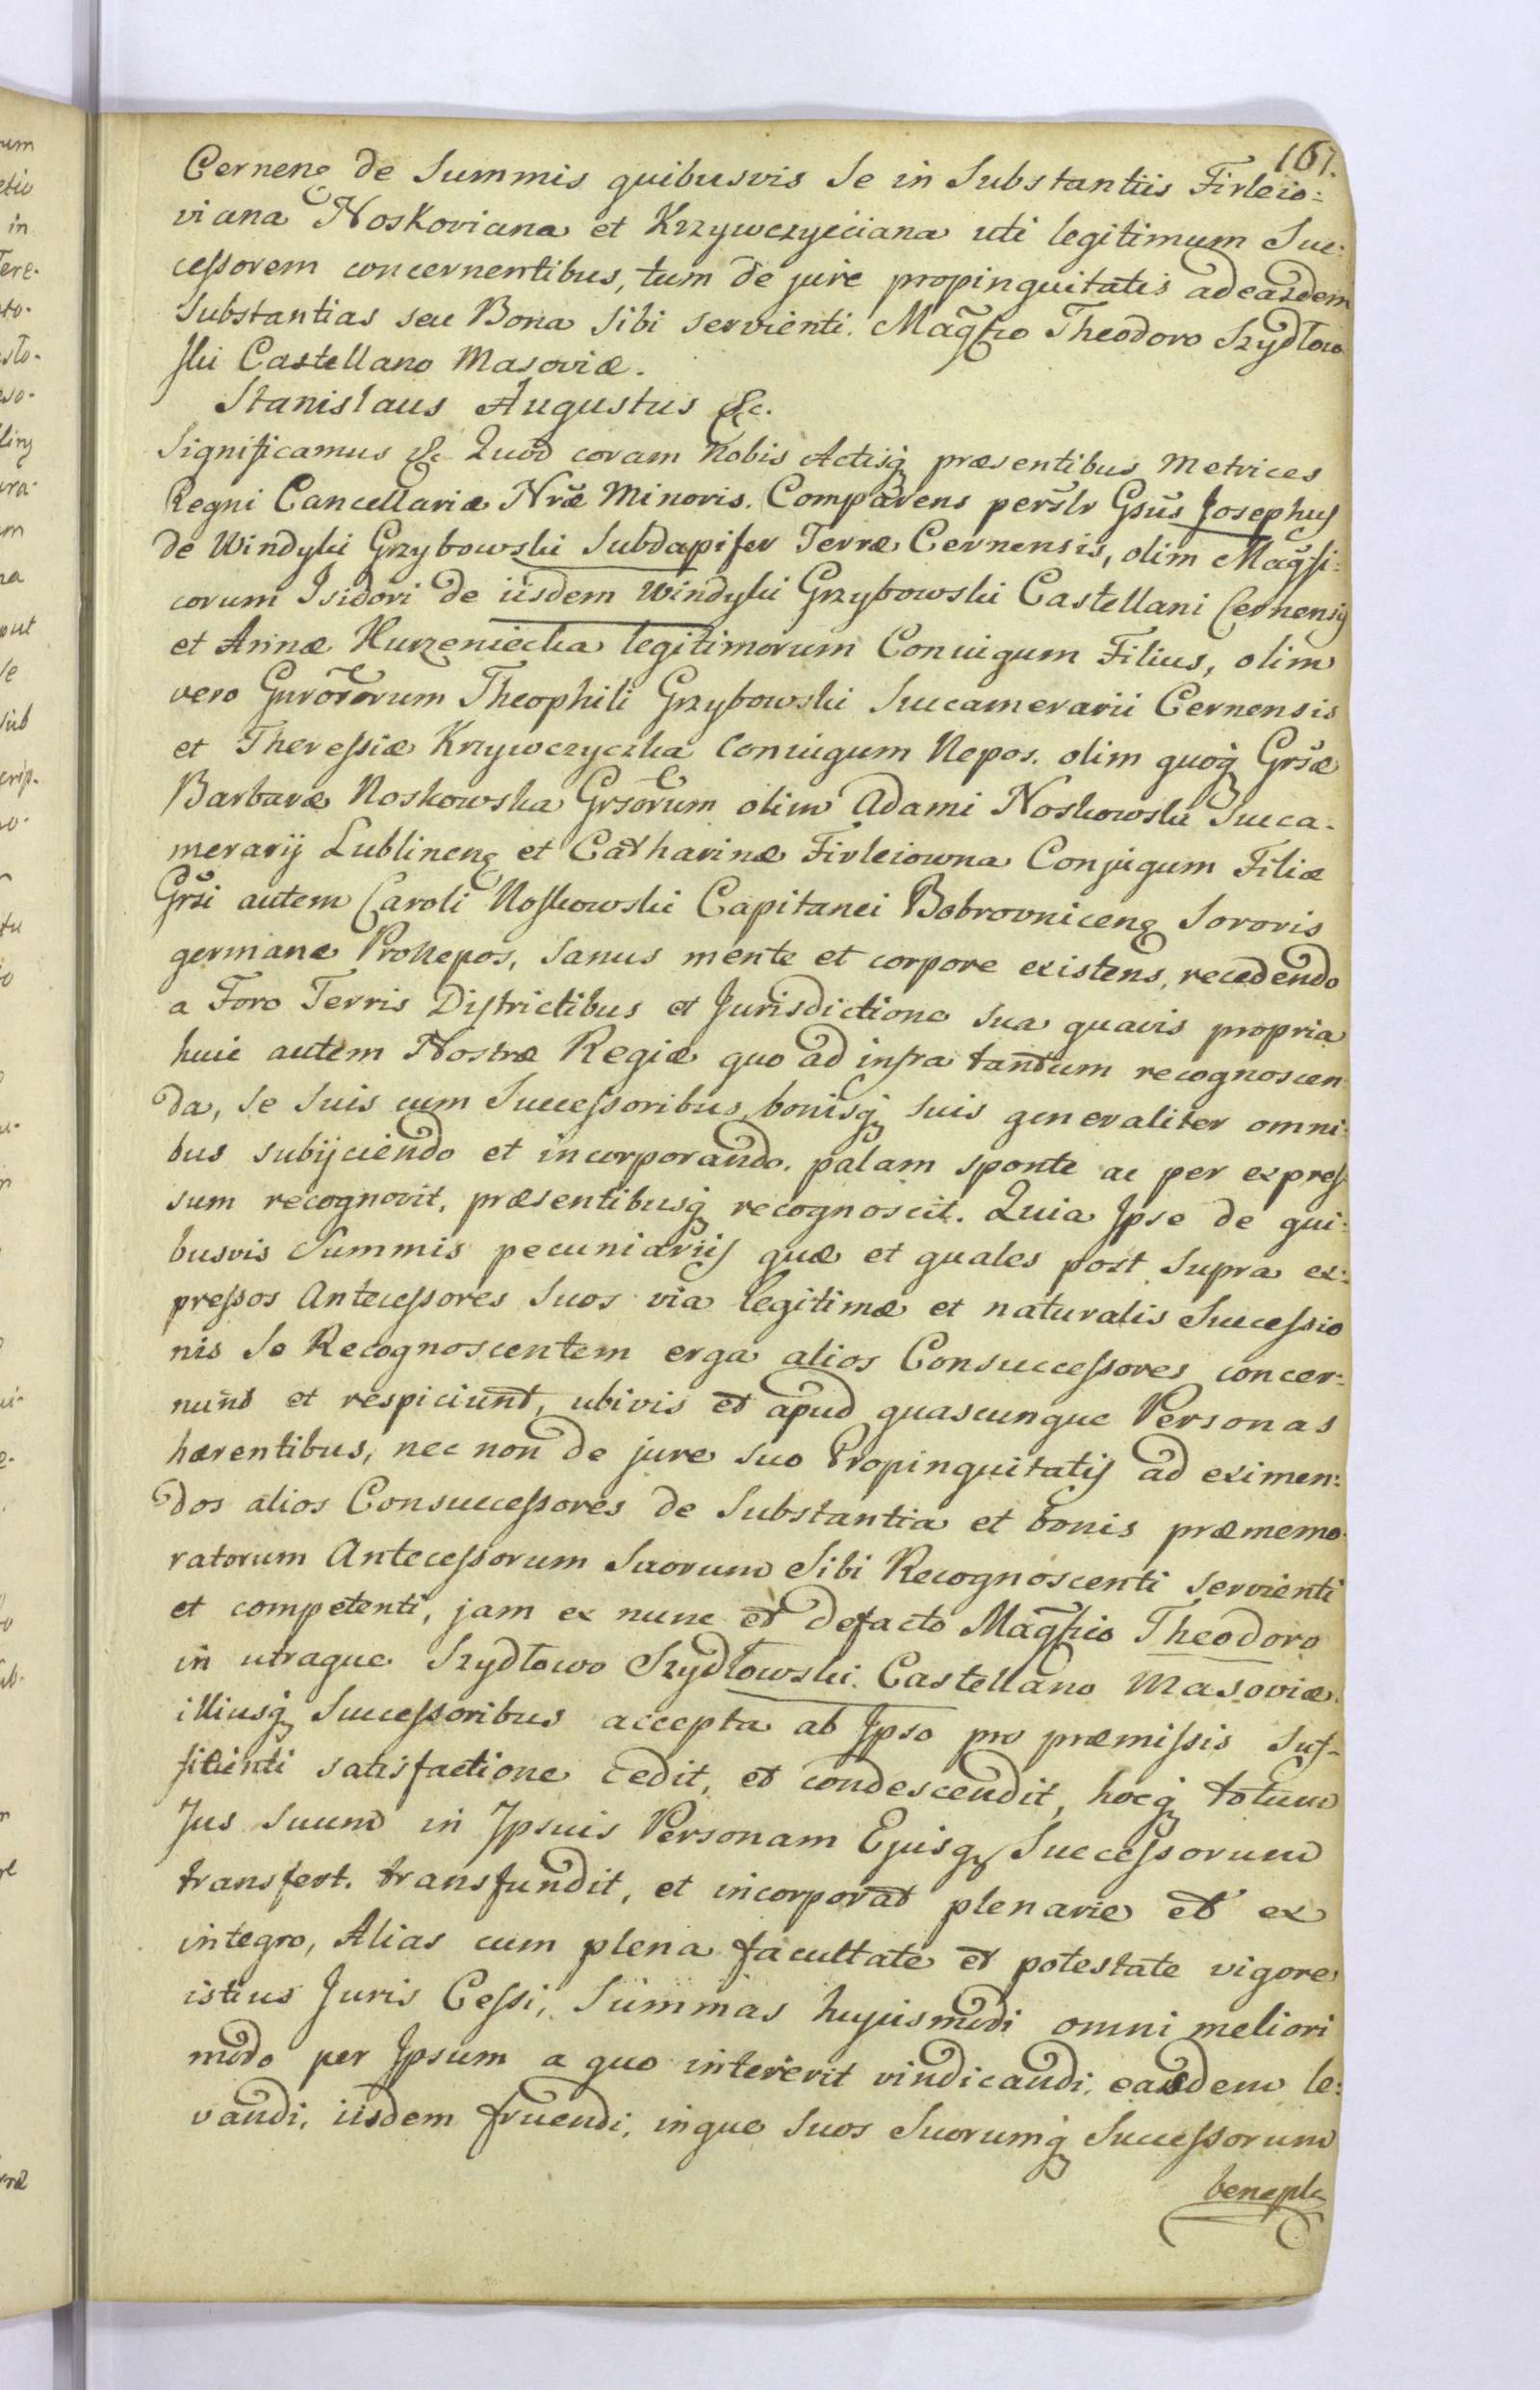 161.
Cernenȩ de Summis quibusvis Se in Substantiis Firleio:
viana Noskoviana et Krzywczyciana uti legitimum Suc:
cessorem concernentibus, tum de jure propinquitatis ad easdem
Substantias seu Bona Sibi servienti. Magfico Theodoro Szydłow
ski Castellano Masoviæ.
Stanislaus Augustus &c.
Significamus &c Quod coram Nobis Actisq præsentibus Metrices
Regni Cancellariæ Nræ Minoris. Comparens perslr Gsus Josephus
de Windyki Grzybowski Subdapifer Terræ Cernensis, olim Magfi:
corum Isidori de iisdem Windyki Grzybowski Castellani Cernensis
et Annæ Kurzeniecka legitimorum Coniugum Filius, olim
vero Gnrororum Theophili Grzybowski Succamerarii Cernensis
et Theressiæ Krzywczyczka Coniugum Nepos. olim quoq Grsæ
Barbaræ Noskowska Grsorum olim Adami Noskowski Succa-
merarij Lublinenȩ et Catharinæ Firleiowna Conjugum Filiæ
Grsi autem Caroli Noskowski Capitanei Bobrovnicenȩ Sororis
germanæ ProNepos, Sanus mente et corpore existens, recedendo
a Foro Terris Districtibus et Jurisdictione Sua quavis propria
huic autem Nostræ Regiæ quo ad infra tantum recognoscen
da, Se Suis cum Successoribus, bonisq suis generaliter omni:
bus subijciendo et incorporando. palam sponte ac per expres
sum recognovit, præsentibusq recognoscit. Quia Ipse de qui:
busvis Summis pecuniariis quæ et quales post Supra ex:
pressos Antecessores Suos via legitimæ et naturalis Successio
nis Se Recognoscentem erga alios Consuccessores concer:
nunt et respiciunt, ubivis et apud quascunque Personas
hærentibus, nec non de jure suo Propinquitatis ad eximen:
dos alios Consuccessores de Substantia et bonis præmemo
ratorum Antecessorum Suorum Sibi Recognoscenti servienti
et competenti, jam ex nunc et defacto Magfico Theodoro
in utraque Szydłowo Szydłowski Castellano Masoviæ.
illiusq Successoribus accepta ab Ipso pro præmissis Suf-
ficienti satisfactione cedit, et condescendit, hocq totum
Jus Suum in Ipsius Personam Ejusq Successorum
transfert. transfundit, et incorporat plenarie et ex
integro, Alias cum plena facultate et potestate vigore
istius Juris Cessi, Summas hujusmodi omni meliori
modo per Ipsum a quo intererit vindicandi, easdem le:
vandi, iisdem fruendi, inque Suos Suorumq Successorum
benepla